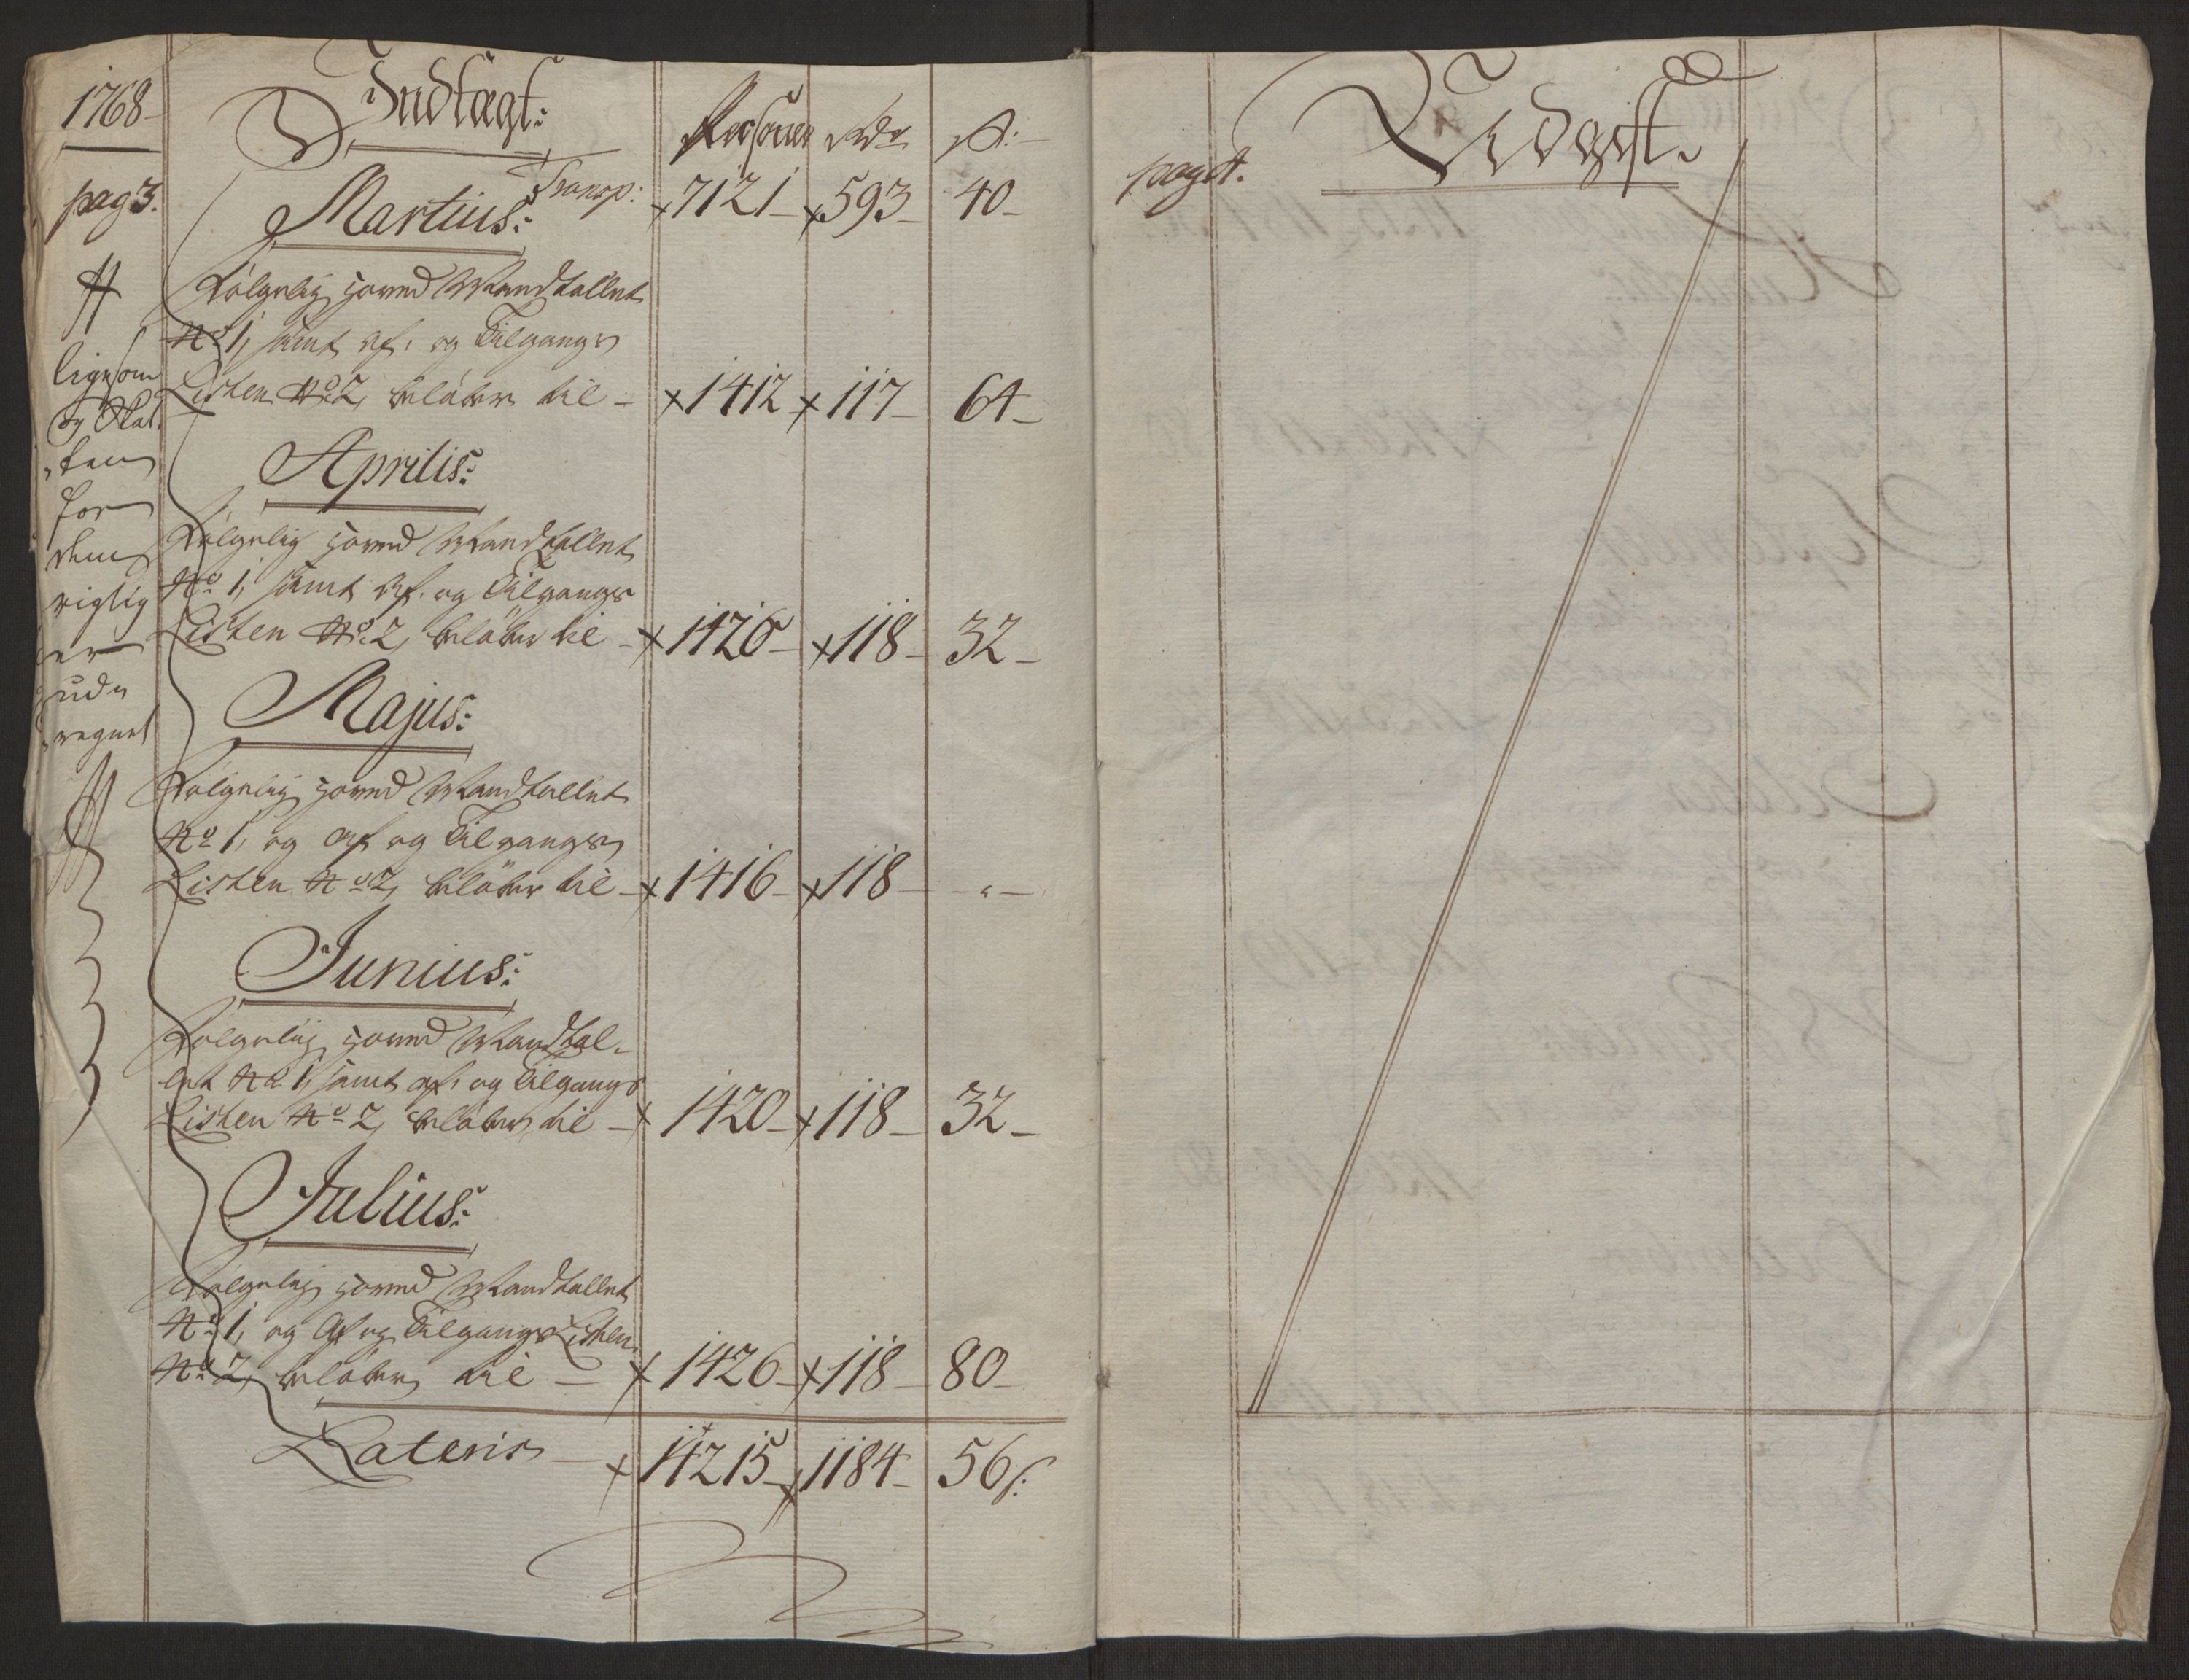 1768
Indtægt:
Persohner Rdr s:
pag 3.
Transp: 7121 593 40
Martius:
Følgelig hoved Mandtallet
No 1, samt af- og Tilgangs
Listen No 2, beløber til 1412 117 64
Aprilis:
Følgelig hoved Mandtallet
No 1, samt Af- og Tilgangs
Listen No 2, beløber til 1420 118 32
Majus:
Følgelig hoved Mandtallet
No 1, og Af og Tilgangs
Listen No 2, beløber til 1416 118 "
Junius:
Følgelig hoved Mandtal-
let No 1, samt af- og Tilgangs
Listen No 2, beløber til 1420 118 32
Julius:
Følgelig hoved Mandtallet
No 1, og Af og Tilgangs Listen
No 2, beløber til 1426 118 80
Lateris 14215 1184 56 s:
ligesom
og Skat-
ten
for
dem
rigtig
er
udreg
regnet
pag 4.
Udgift.